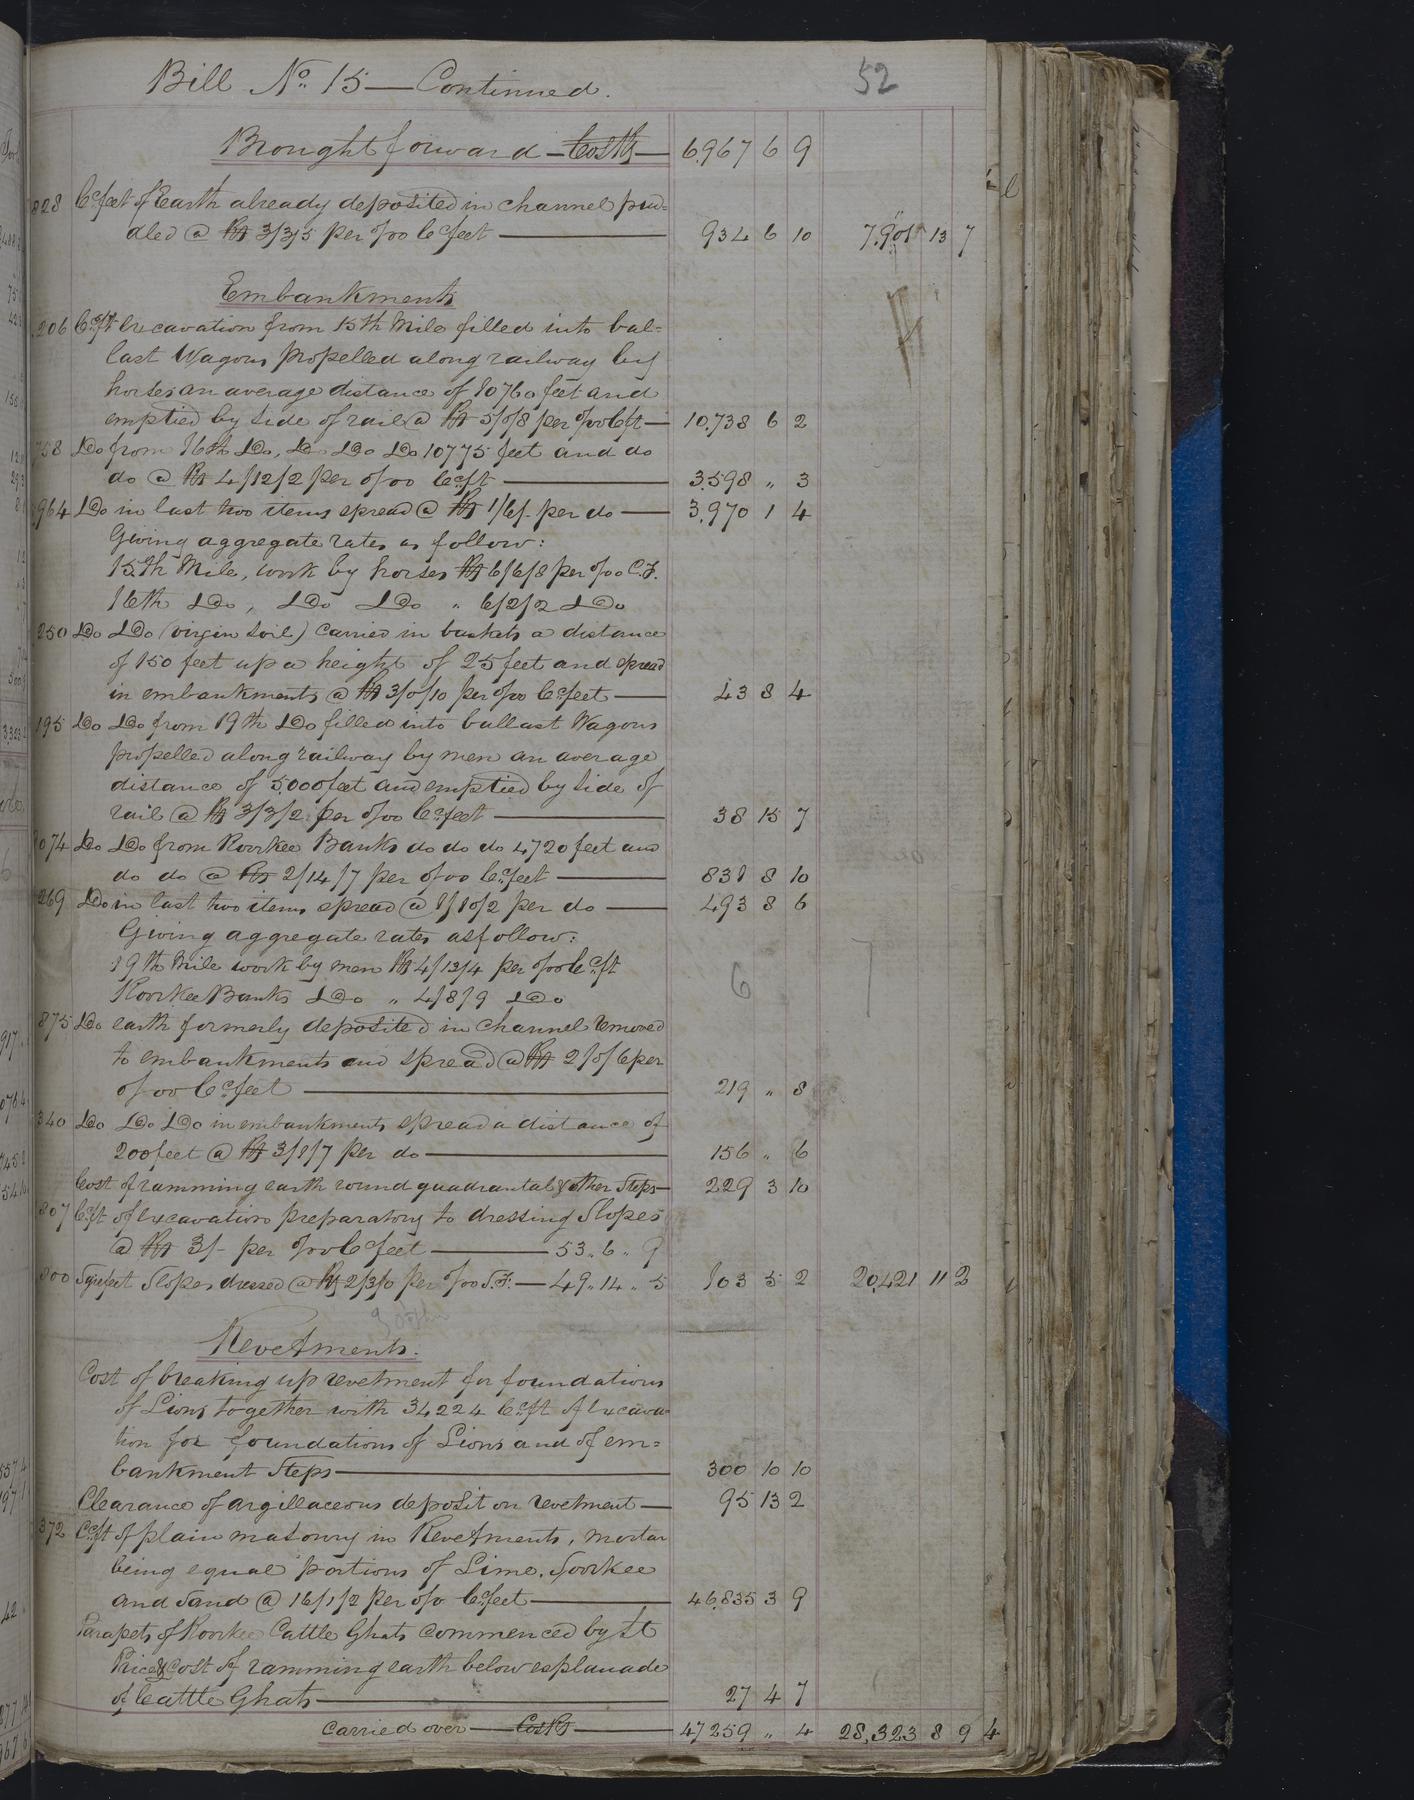 Bill No. 15 — Continued.
52
Brought forward — Co's Rs — 6,967 6 9
828 C. feet of Earth already deposited in channel pud=
dled @ Rs 3/3/5 per 0/00 C. feet — 934 6 10 7,901 13 7
Embankments
206 C. ft Excavation from 15th Mile filled into bal=
last Wagons propelled along railway by
horses an average distance of 10760 feet and
emptied by side of rail @ Rs 5/0/8 per 0/00 C ft — 10,738 6 2
758 Do from 16th Do, Do Do Do 10775 feet and do
do @ Rs 4/12/2 per 0/00 C. ft — 3,598 " 3
964 Do in last two items spread @ Rs 1/6/- per do — 3,970 1 4
Giving aggregate rates as follow:
15th Mile, work by horses Rs 6/6/8 per 0/00 C.F.
16th Do, Do Do " 6/2/2 Do
250 Do Do (virgin soil) carried in baskets a distance
of 150 feet up a height of 25 feet and spread
in embankments @ Rs 3/0/10 per 0/00 C. feet — 43 8 4
195 Do Do from 19th Do filled into ballast Wagons
propelled along railway by men an average
distance of 5,000 feet and emptied by side of
rail @ Rs 3/3/2 per 0/00 C. feet — 38 15 7
074 Do Do from Roorkee Banks do do do 4720 feet and
do do @ Rs 2/14/7 per 0/00 C. feet — 831 8 10
269 Do in last two items spread @ 1/10/2 per do — 493 8 6
Giving aggregate rates as follow:
19th Mile work by men Rs 4/13/4 per 0/00 C. ft
Roorkee Banks Do " 4/8/9 Do
6
875 Do earth formerly deposited in channel removed
to embankments and spread @ Rs 2/0/6 per
0/00 C. feet — 219 " 8
340 Do Do Do in embankments spread a distance of
200 feet @ Rs 3/1/7 per do — 156 " 6
Cost of ramming earth round quadrantal & other Steps — 229 3 10
807 C. ft of excavation preparatory to dressing Slopes
@ Rs 3/- per 0/00 C. feet — 53 " 6 " 9
800 Sq. feet Slopes dressed @ Rs 2/3/0 per 0/00 S.F. — 49 " 14 " 5 103 5 2 20,421 11 2
Revetments.
Cost of breaking up revetment for foundations
of Lions together with 34224 C. ft of excava=
tion for foundations of Lions and of em=
bankment Steps — 300 10 10
Clearance of argillaceous deposit on revetment — 95 13 2
372 C. ft of plain masonry in Revetments, mortar
being equal portions of Lime, Soorkee
and Sand @ 16/1/2 per 0/0 C. feet — 46,835 3 9
Parapets of Roorkee Cattle Ghats commenced by Lt
Price & Cost of ramming earth below esplanade
of Cattle Ghats — 27 4 7
Carried over — Co's Rs — 47259 " 4 28,323 8 9